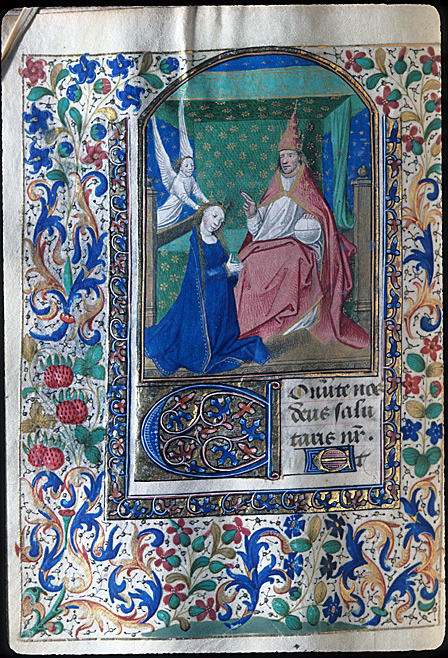 Conute nos
deus salu
taris nr̄.
Et